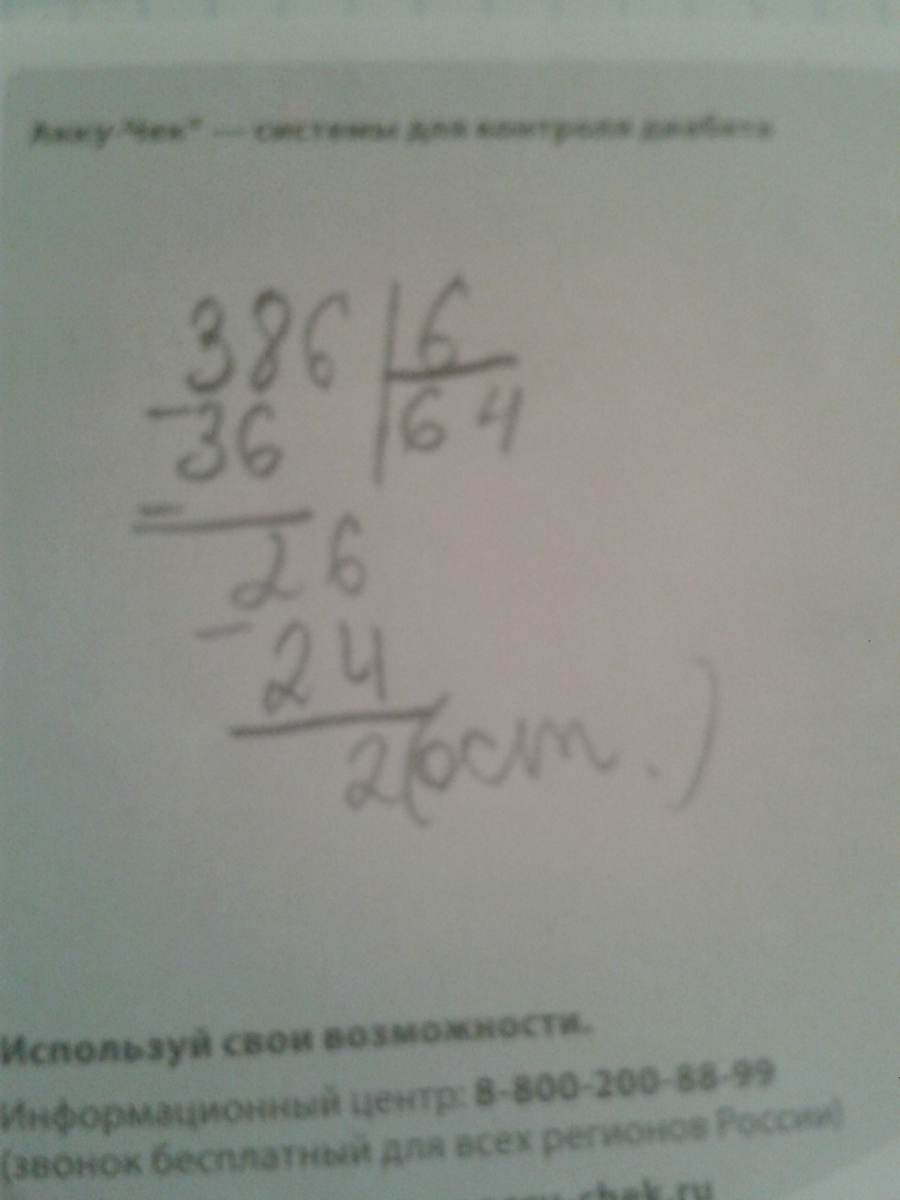 Акку-Чек® — системы для контроля диабета
386 | 6
- 36 | 64
26
- 24
2 (ост.)
Используй свои возможности.
Информационный центр: 8-800-200-88-99
(звонок бесплатный для всех регионов России)
chek.ru